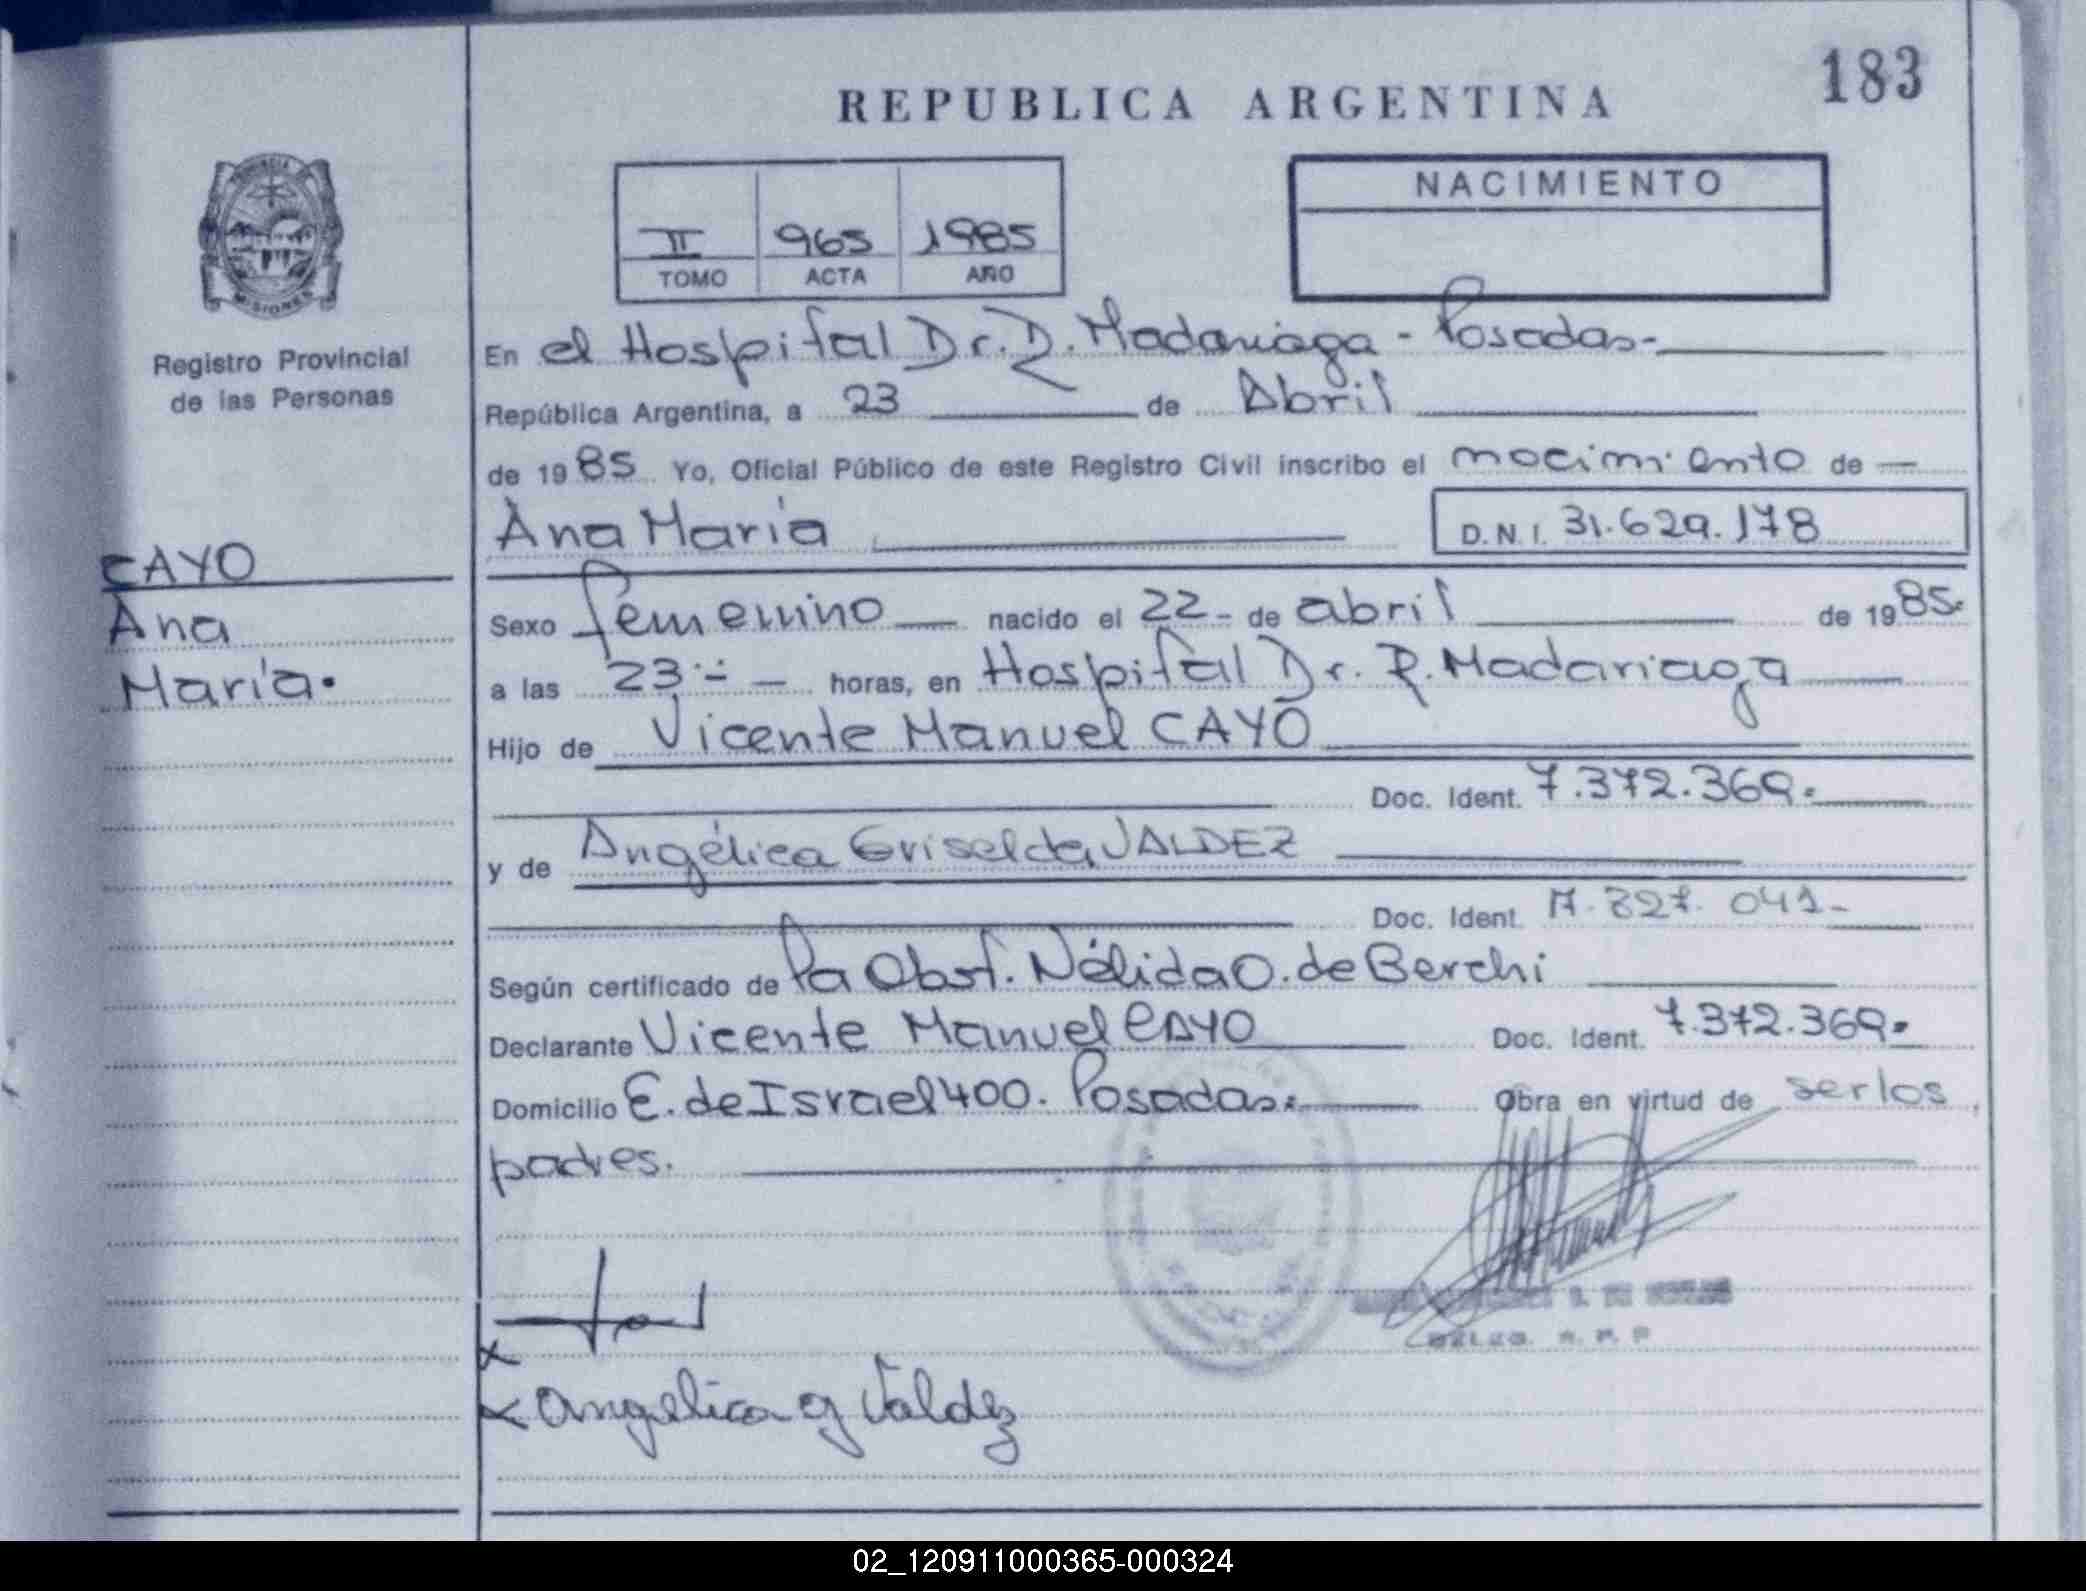 183
REPUBLICA ARGENTINA
PROVINCIA
MISIONES
Registro Provincial
de las Personas
II 965 1985
TOMO ACTA AÑO
NACIMIENTO
En el Hospital Dr. R. Madariaga - Posadas.-
República Argentina, a 23 de Abril
de 1985 Yo, Oficial Público de este Registro Civil inscribo el nacimiento de
Ana María
D.N.I. 31.629.178
CAYO
Ana
María.
Sexo femenino nacido el 22 - de abril de 1985.
a las 23 :- - horas, en Hospital Dr. R. Madariaga
Hijo de Vicente Manuel CAYO
Doc. Ident. 7.372.369.
y de Angélica Griselda VALDEZ
Doc. Ident. 17.327.041-
Según certificado de la Obst. Nélida O. de Berchi
Declarante Vicente Manuel CAYO Doc. Ident. 7.372.369.
Domicilio E. de Israel 400. Posadas. Obra en virtud de ser los
padres.
Angelica g Valdez
02_120911000365-000324